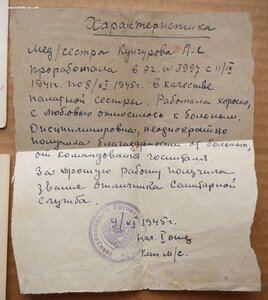 Характеристика
Мед/сестра Кунгурова А-С
проработала в эг. № 3997 с 11/IX
1941г. по 8/XI 1945г. в качестве
палатной сестры. Работала хорошо,
с любовью относилось к больным.
Дисциплинирована, неоднократно
получала благодарности от больных,
от командования госпиталя.
За хорошую работу получила
звание отличника санитарной
службы.
9/XI 1945г.
нач. I отд.
м/с.